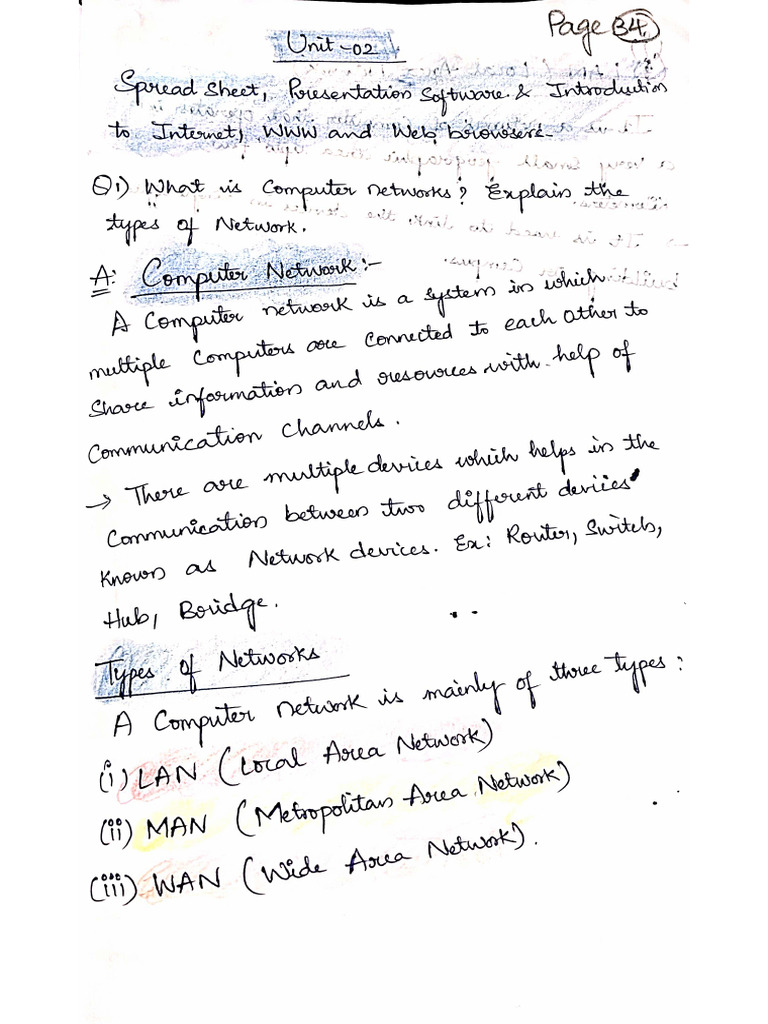 Page 34.
Unit-02
Spread sheet, Presentation Software & Introduction
to Internet, WWW and Web browsers-
Q1) What is Computer networks? Explain the
types of Network.
A: Computer Network:-
A Computer network is a system in which
multiple Computers are connected to each other to
share information and resources with help of
Communication Channels.
→ There are multiple devices which helps in the
Communication between two different devices
known as Network devices. Ex: Router, Switch,
Hub, Bridge.
Types of Networks
A Computer network is mainly of three types:
(i) LAN (Local Area Network)
(ii) MAN (Metropolitan Area Network)
(iii) WAN (Wide Area Network).